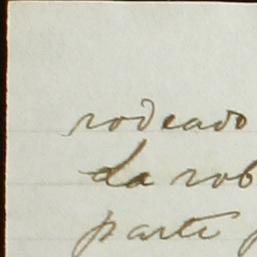 rodeado
La rob
parte